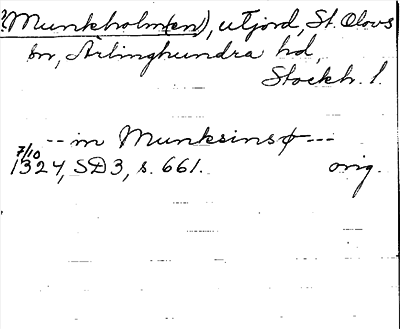 ?(Munkholm(en), utjord, St. Olovs
sn, Ärlinghundra hd,
Stockh. l.
-- in Munksinsø ---
7/10
1324, SD3, s. 661. orig.